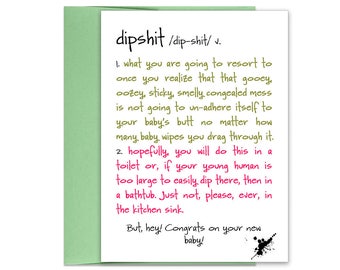 dipshit /dip-shit/ v.
1. what you are going to resort to
once you realize that that gooey,
oozey, sticky, smelly, congealed mess
is not going to un-adhere itself to
your baby's butt no matter how
many baby wipes you drag through it.
2. hopefully, you will do this in a
toilet or, if your young human is
too large to easily dip there, then in
a bathtub. Just not, please, ever, in
the kitchen sink.
But, hey! Congrats on your new
baby!